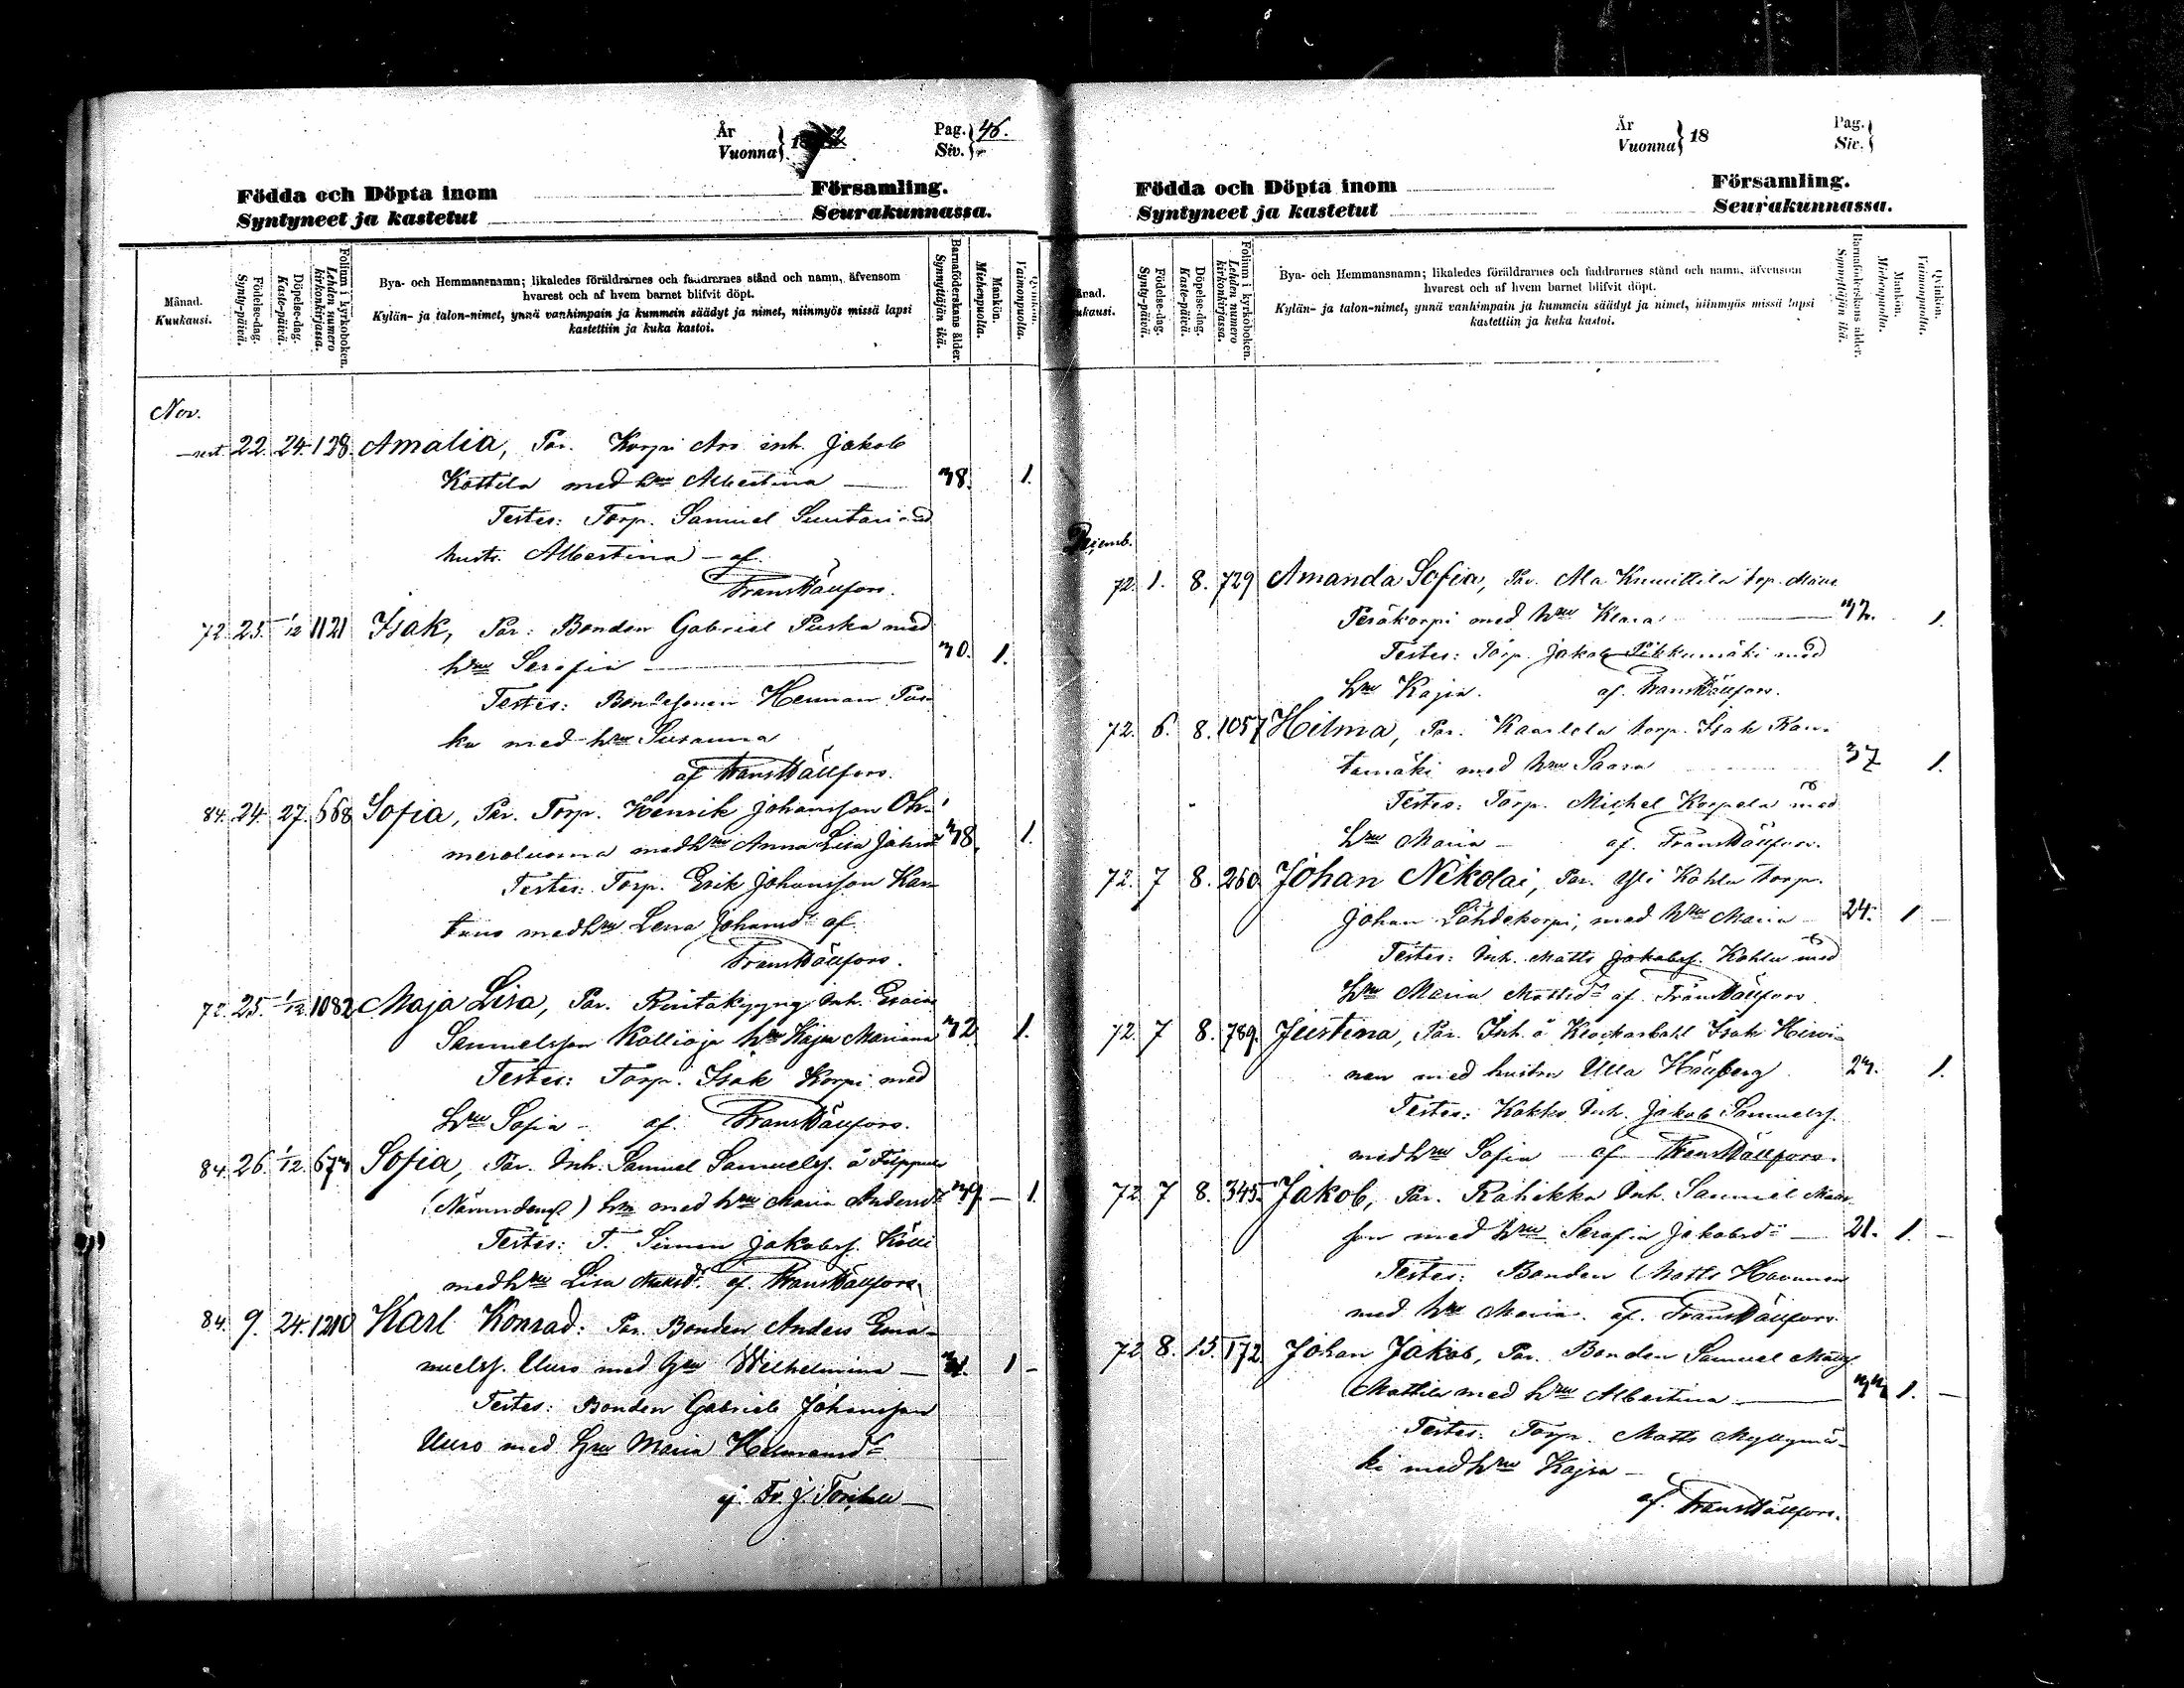 År
Vuonna } 18
Pag. } 46.
Siv.
Födda och Döpta inom Församling.
Syntyneet ja kastetut Seurakunnassa.
Månad.
Kuukausi.
Födelse-dag.
Synty-päivä.
Döpelse-dag.
Kaste-päivä.
Folium i kyrkoboken.
Lehden numero
kirkonkirjassa.
Bya- och Hemmansnamn; likaledes föräldrarnes och faddrarnes stånd och namn, äfvensom
hvarest och af hvem barnet blifvit döpt.
Kylän- ja talon-nimet, ynnä vanhimpain ja kummein säädyt ja nimet, niinmyös missä lapsi
kastettiin ja kuka kastoi.
Barnaföderskans ålder.
Synnyttäjän ikä.
Mankön.
Miehenpuolta.
Qvinkön.
Vaimonpuolta.
Nov.
22. 24. 128. Amalia, Par. Korpi inh. Jakob
Kottila med hru Albertina — 38. 1.
Testes: Torp. Samuel Suutari med
hustr. Albertina — af
Frans Hällfors.
72. 25. 1/12 1121 Isak, Par: Bonden Gabriel Puska med
hru Serafia — 30. 1.
Testes: Bondesonen Herman Pus-
ka med hru Susanna
af Frans Hällfors.
84. 24. 27. 668 Sofia, Par. Torp. Henrik Johansson Oh-
meroluoma med hru Anna Lisa Johsd 38. 1.
Testes: Torp. Erik Johansson Kan-
tuus med hru Lena Johansdr af
Frans Hällfors.
72. 25. 1/12. 1082 Maja Lisa, Par. Rintakyyny Inh. Esaias
Samuelsson Kallioja hru Kajsa Mariana 32 1.
Testes: Torp. Isak Korpi med
hru Sofia — af Frans Hällfors.
84. 26. 1/12. 673 Sofia, Par. Inh. Samuel Samuelss. å Filppula
med hru Maria Andersdr 39 — 1.
Testes: T. Simon Jakobss. Kölli
med hru Lisa af Frans Hällfors.
84. 9. 24. 1210 Karl Konrad: Par. Bonden Anders Ema-
nuelss. Uuro med hru Wilhelmina — 1 —
Testes: Bonden Gabriel Johansson
Uuro med hru Maria Hermansdr
af Fr. J. Torckell —
År
Vuonna } 18
Pag. }
Siv.
Födda och Döpta inom Församling.
Syntyneet ja kastetut Seurakunnassa.
Månad.
Kuukausi.
Födelse-dag.
Synty-päivä.
Döpelse-dag.
Kaste-päivä.
Folium i kyrkoboken.
Lehden numero
kirkonkirjassa.
Bya- och Hemmansnamn; likaledes föräldrarnes och faddrarnes stånd och namn, äfvensom
hvarest och af hvem barnet blifvit döpt.
Kylän- ja talon-nimet, ynnä vanhimpain ja kummein säädyt ja nimet, niinmyös missä lapsi
kastettiin ja kuka kastoi.
Barnaföderskans ålder.
Synnyttäjän ikä.
Mankön.
Miehenpuolta.
Qvinkön.
Vaimonpuolta.
Decemb.
72. 1. 8. 729 Amanda Sofia, Par. Ala Knuuttila
Peräkorpi med hru Klara — 32. 1.
Testes: Torp. Jakob Pikkumäki med
hru Kajsa. af Frans Hällfors.
72. 6. 8. 1057 Hilma, Par. Kaarlela torp. Isak Rau-
tamäki med hru Saara 37 1.
Testes: Torp. Michel Korpela med
hru Maria — af. Frans Hällfors.
72. 7 8. 260 Johan Nikolai, Par. Yli Kohla torp.
Johan Lähdekorpi, med hru Maria — 24. 1 —
Testes: Inh. Matts Jakobss. Kohla med
hru Maria Mattsdr af Frans Hällfors.
72. 7 8. 789. Justina, Par. Inh. å Klockarbohl Isak Hirvi-
nen med hustru Ulla Hällberg 23. 1.
Testes: Kokko Inh. Jakob Samuelss.
med hru Sofia — af Frans Hällfors.
72 7 8. 345. Jakob, Par. Rahikka Inh. Samuel
son med hru Serafia Jakobsdr — 21. 1. —
Testes: Bonden Matts Havunen
med hru Maria. af. Frans Hällfors.
72 8. 15. 172. Johan Jakob, Par. Bonden Samuel Mattss.
Mattila med hru Albertina — 33 1. —
Testes: Torp. Matts Myllymä-
ki med hru Kajsa —
af. Frans Hällfors.